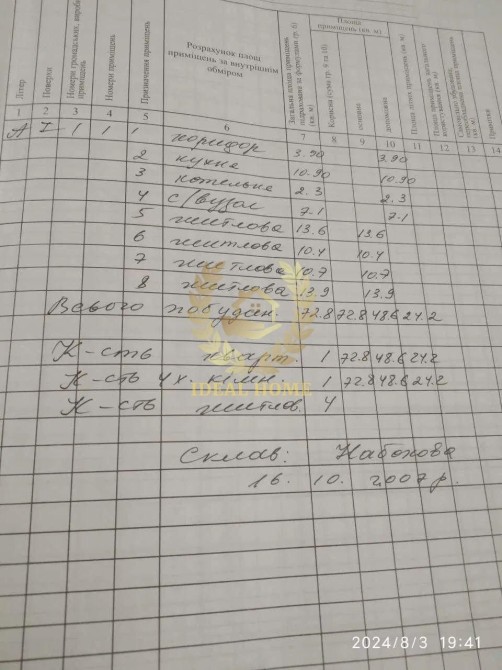 Літер
Поверхи
Номери приміщень
Призначення приміщень
Розрахунок площ
приміщень за внутрішнім
обміром
Загальна площа приміщень
підрахована за формулами (гр. 6)
(кв. м)
Площа
приміщень (кв. м)
Корисна (сума гр. 9 та 10)
основна
допоміжна
Примітки
1 2 3 4 5 6 7 8 9 10 11 12 13 14
А I 1 1 1 коридор 3.90 3.90
2 кухня 10.90 10.90
3 котельня 2.3 2.3
4 с/вузол 7.1 7.1
5 житлова 13.6 13.6
6 житлова 10.4 10.4
7 житлова 10.7 10.7
8 житлова 13.9 13.9
Всього по будин. 72.8 72.8 48.6 24.2
К-сть кварт. 1 72.8 48.6 24.2
К-сть 4х кімн 1 72.8 48.6 24.2
К-сть житлов. 4
IDEAL HOME
Склав: Набокова
16. 10. 2007 р.
2024/8/3 19:41